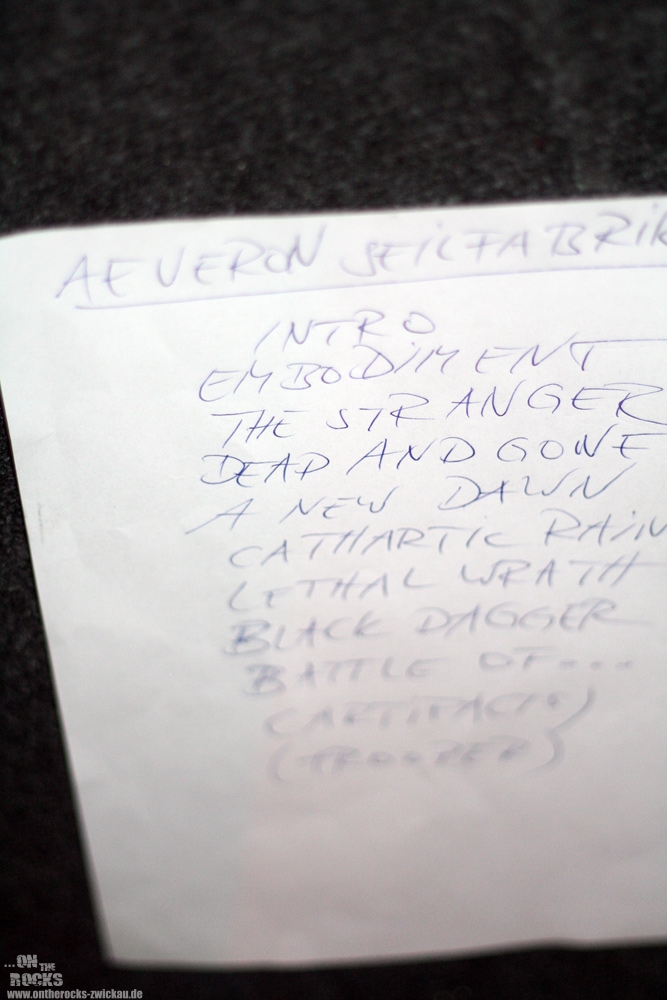 AEVERON SEILFABRIK
INTRO
EMBODIMENT
THE STRANGER
DEAD AND GONE
A NEW DAWN
CATHARTIC RAIN
LETHAL WRATH
BLACK DAGGER
BATTLE OF....
(ARTIFACTS)
(TROOPER)
...ON THE
ROCKS
www.ontherocks-zwickau.de